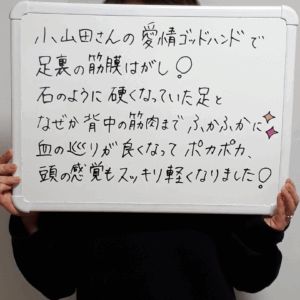 小山田さんの愛情ゴッドハンドで
足裏の筋膜はがし!
石のように硬くなっていた足と
なぜか背中の筋肉までふかふかに
血の巡りが良くなってポカポカ、
頭の感覚もスッキリ軽くなりました!